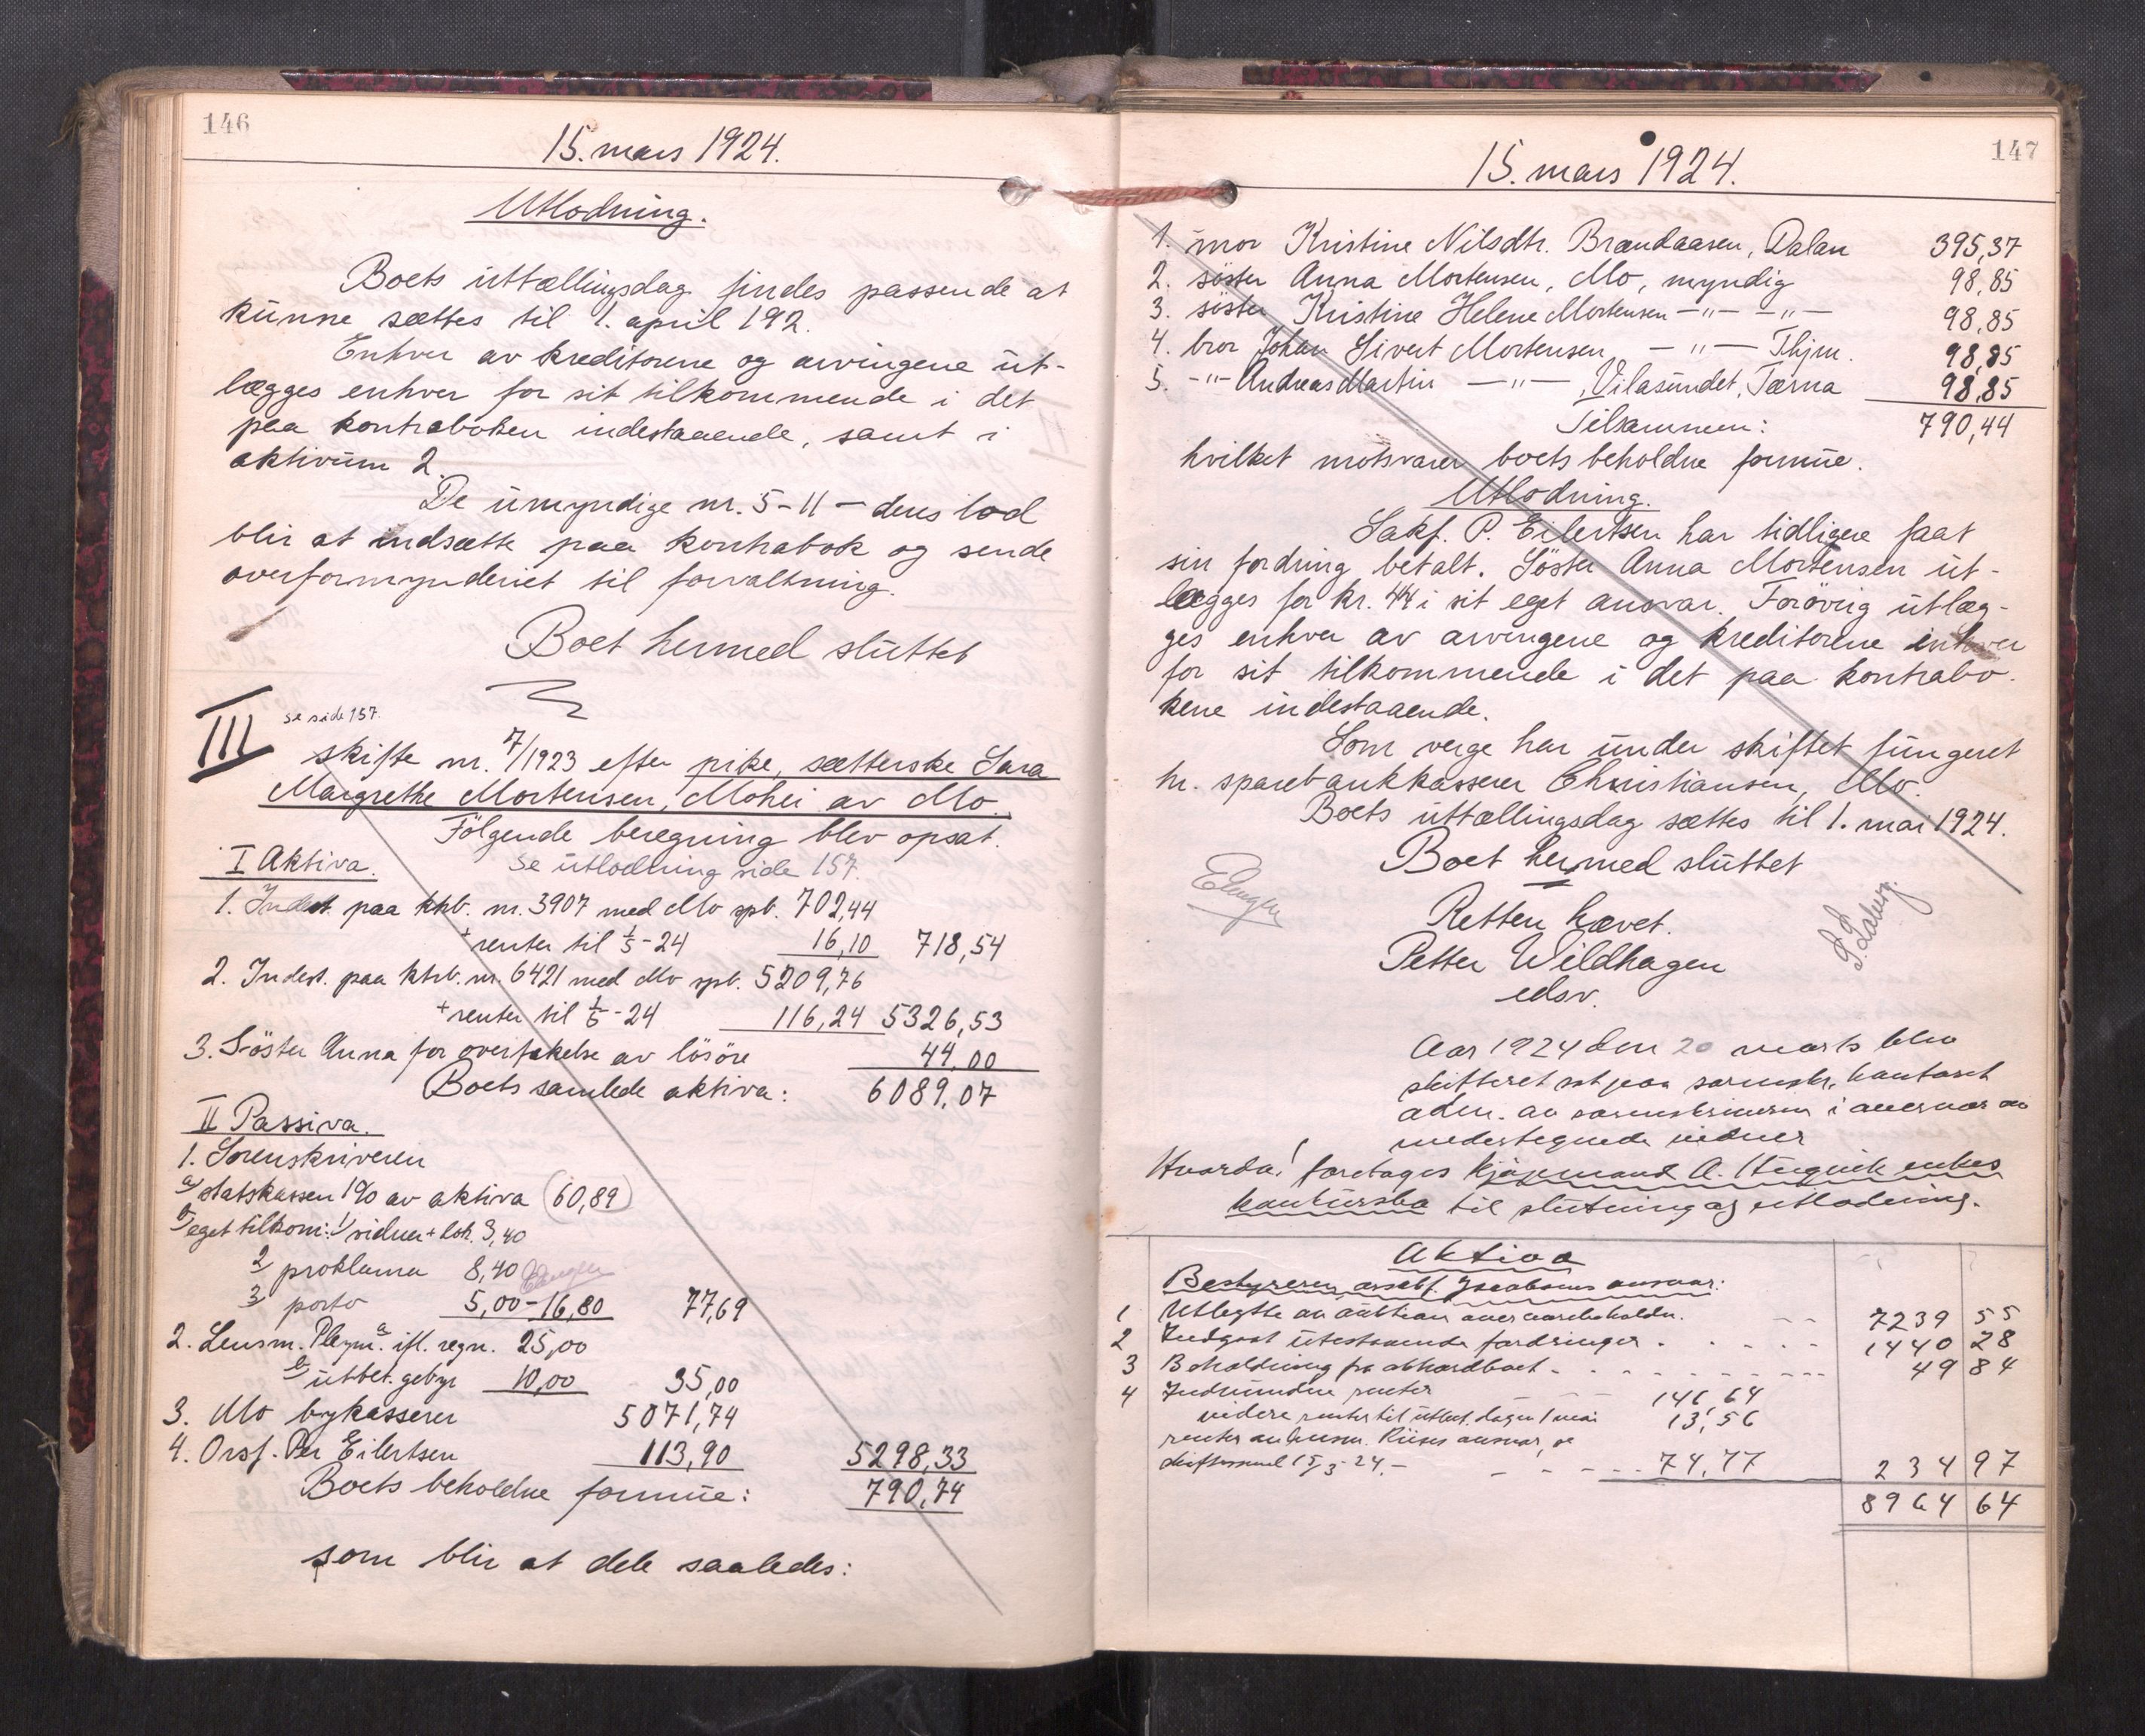 146
15. mars 1924.
Utlodning.
Boets uttællingsdag findes passende at
kunne sættes til 1. april 192.
Enhver av kreditorene og arvingene ut-
lægges enhver for sit tilkommende i det
paa kontraboken indestaaende, samt i
aktivum 2.
De umyndige nr. 5-11 – deres lod
blir at indsætte paa kontrabok og sende
overformynderiet til forvaltning.
Boet hermed sluttet
III se side 157.
skifte nr. 7/1923 efter pike, sætterske Sara
Margrethe Mortensen, Mohei av Mo.
Følgende beregning blev opsat.
I Aktiva. Se utlodning side 157.
1. Indest. paa ktrb. nr. 3907 med Mo spb. 702,44
+ renter til 1/5-24 16,10 718,54
2. Indest. paa ktrb. nr. 6421 med Mo spb. 5209,76
+ renter til 1/5-24 116,24 5326,53
3. Søster Anna for overtakelse av løsøre 44,00
Boets samlede aktiva: 6089,07
II Passiva.
1. Sorenskriveren
a) statskassen 1% av aktiva (60,89)
b) eget tilkom: 1/ vidner + lok. 3,40
2 proklama 8,40
3 porto 5,00 - 16,80 77,69
2. Lensm. Pleym. a ifl. regn. 25,00
b) utbet. gebyr 10,00 35,00
3. Mo bykasserer 5071,74
4. Orsf. Per Eilertsen 113,90 5298,33
Boets beholdne formue: 790,74
som blir at dele saaledes:
147
15. mars 1924.
1. mor Kristine Nilsdtr. Brændaasen, Dalan 395,37
2. søster Anna Mortensen, Mo, myndig 98,85
3. søster Kristine Helene Mortensen –"– –"– 98,85
4. bror Johan Sivert Mortensen –"– Thjm. 98,85
5. –"– Andreas Martin –"–, Vilasundet, Tærna 98,85
Tilsammen: 790,44
hvilket motsvarer boets beholdne formue.
Utlodning.
Sakf. P. Eilertsen har tidligere faat
sin fordring betalt. Søster Anna Mortensen ut-
lægges for kr. 44 i sit eget ansvar. Forøvrig utlæg-
ges enhver av arvingene og kreditorene enhver
for sit tilkommende i det paa kontrabø-
kene indestaaende.
Som verge har under skiftet fungeret
hr. sparebankkasserer Christiansen, Mo.
Boets uttællingsdag sættes til 1. mai 1924.
Boet hermed sluttet
Retten hævet.
Petter Wildhagen
edsv.
Aar 1924 den 20 marts blev
skifteret sat paa sorenskr. kontoret
adm. av sorenskriveren i overvær av
undertegnede vidner
Hvorda! foretages kjøpmand A. enkes
konkursbo til slutning og utlodning.
Aktiva
Bestyreren, orsakf. Jacobsens ansvar:
1 Utbytte av auktion over varebeholdn. 7239 55
2 Indgaat utestaaende fordringer 1440 28
3 Beholdning fra akkordboet 49 84
4 Indvundne renter 146,64
videre renter til utbet. dagen 1 mai 13,56
renter av lensm. Riises ansvar, se
skiftesaml 15/3-24.- 74,77 234 97
8964 64